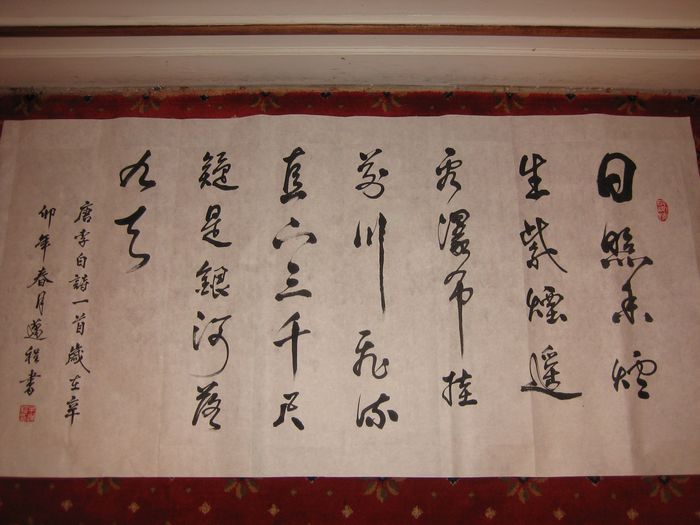 日照香爐
生紫煙遥
看瀑布挂
前川飛流
直下三千尺
疑是銀河落
九天
唐李白詩一首歲在辛
卯年春月程書